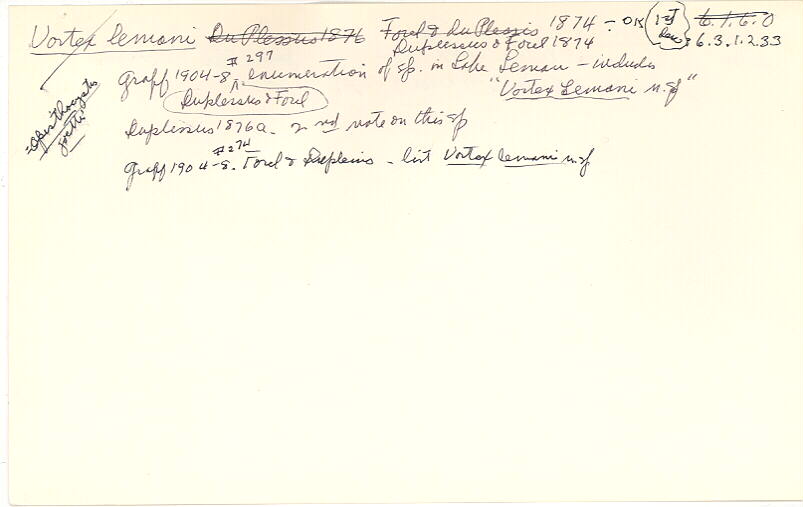 Vortex lemani Du Plessus 1876 Forel & du Plessis 1874 - OK 1st 6.1.6.0
Duplessus & Forel 1874 6.3.1.2.33
#297
Graff 1904-8. enumeration of sp. in Lake Leman - includes
Duplessus & Forel "Vortex Lemani n.sp"
Duplessus 1876a. 2nd note on this sp
#274
Graff 1904-8. Forel & Duplessis - list Vortex lemani n.sp